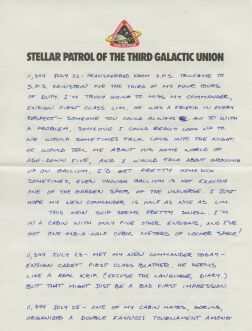 STELLAR PATROL OF THE THIRD GALACTIC UNION
11,344 JULY 22 - TRANSFERRED FROM S.P.S. TRILOGATE TO
S.P.S. FEINSTEIN FOR THE THIRD OF MY FOUR TOURS
OF DUTY. I'M TRULY GOING TO MISS MY COMMANDER,
ENSIGN FIRST CLASS LIM. HE WAS A FRIEND IN EVERY
RESPECT - SOMEONE YOU COULD ALWAYS GO TO WITH
A PROBLEM, SOMEONE I COULD REALLY LOOK UP TO.
WE WOULD SOMETIMES TALK LONG INTO THE NIGHT.
HE WOULD TELL ME ABOUT HIS HOME WORLD OF
ASH-DOWN FIVE, AND I WOULD TALK ABOUT GROWING
UP ON GALLIUM. I'D GET PRETTY HOMESICK
SOMETIMES, EVEN THOUGH GALLIUM IS NOT EXACTLY
ONE OF THE GARDEN SPOTS OF THE UNIVERSE. I JUST
HOPE MY NEW COMMANDER IS HALF AS NICE AS LIM.
THIS NEW SHIP SEEMS PRETTY SWELL. I'M
IN A CABIN WITH ONLY FIVE OTHER ENSIGNS, AND I'VE
GOT ONE AND A HALF CUBIC METERS OF LOCKER SPACE!
11,344 JULY 23 - MET MY NEW COMMANDER TODAY -
ENSIGN CADET FIRST CLASS BLATHER. HE SEEMS
LIKE A REAL KRIP. (EXCUSE THE LANGUAGE, DIARY.)
BUT THAT MIGHT JUST BE A BAD FIRST IMPRESSION.
11,344 JULY 25 - ONE OF MY CABIN MATES,
ORGANIZED A DOUBLE FANUCCI TOURNAMENT AMONG